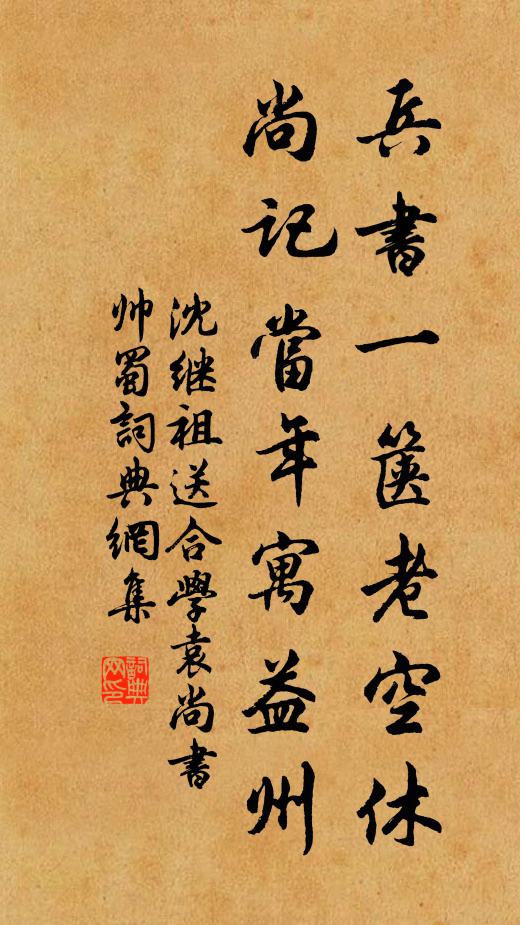 兵書一篋老空休
尚記當年寓益州
沈继祖送合學袁尚書
帅蜀詞典網集
詞典网印